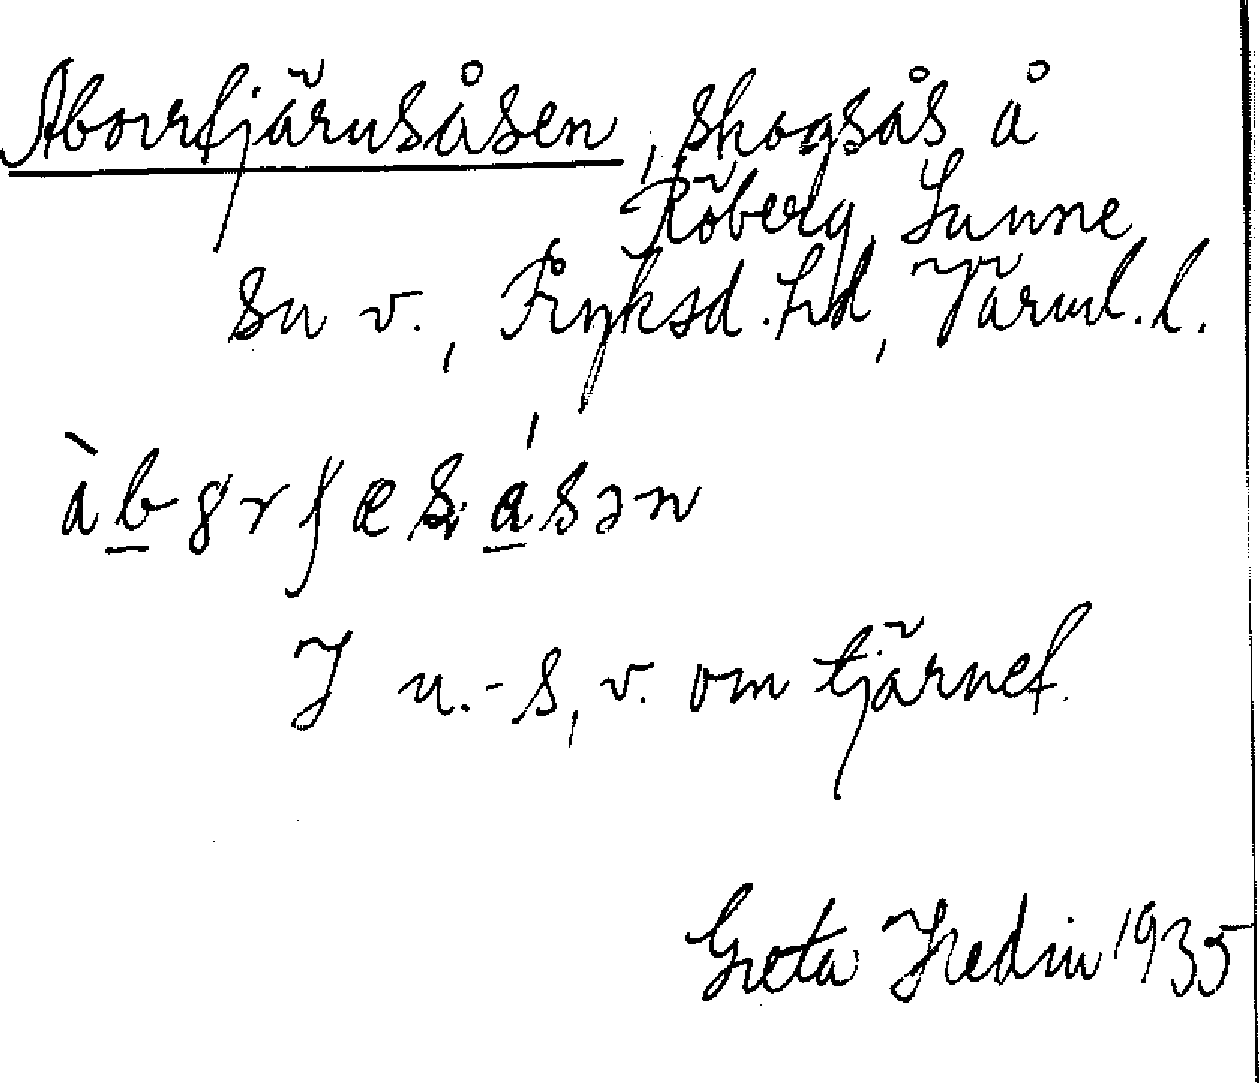 Aborrtjärnsåsen, skogsås å
Röberg, Sunne
sn v., Fryksd. hd, Värml. l.
I n.-s, v. om tjärnet.
Greta Hedin 1935